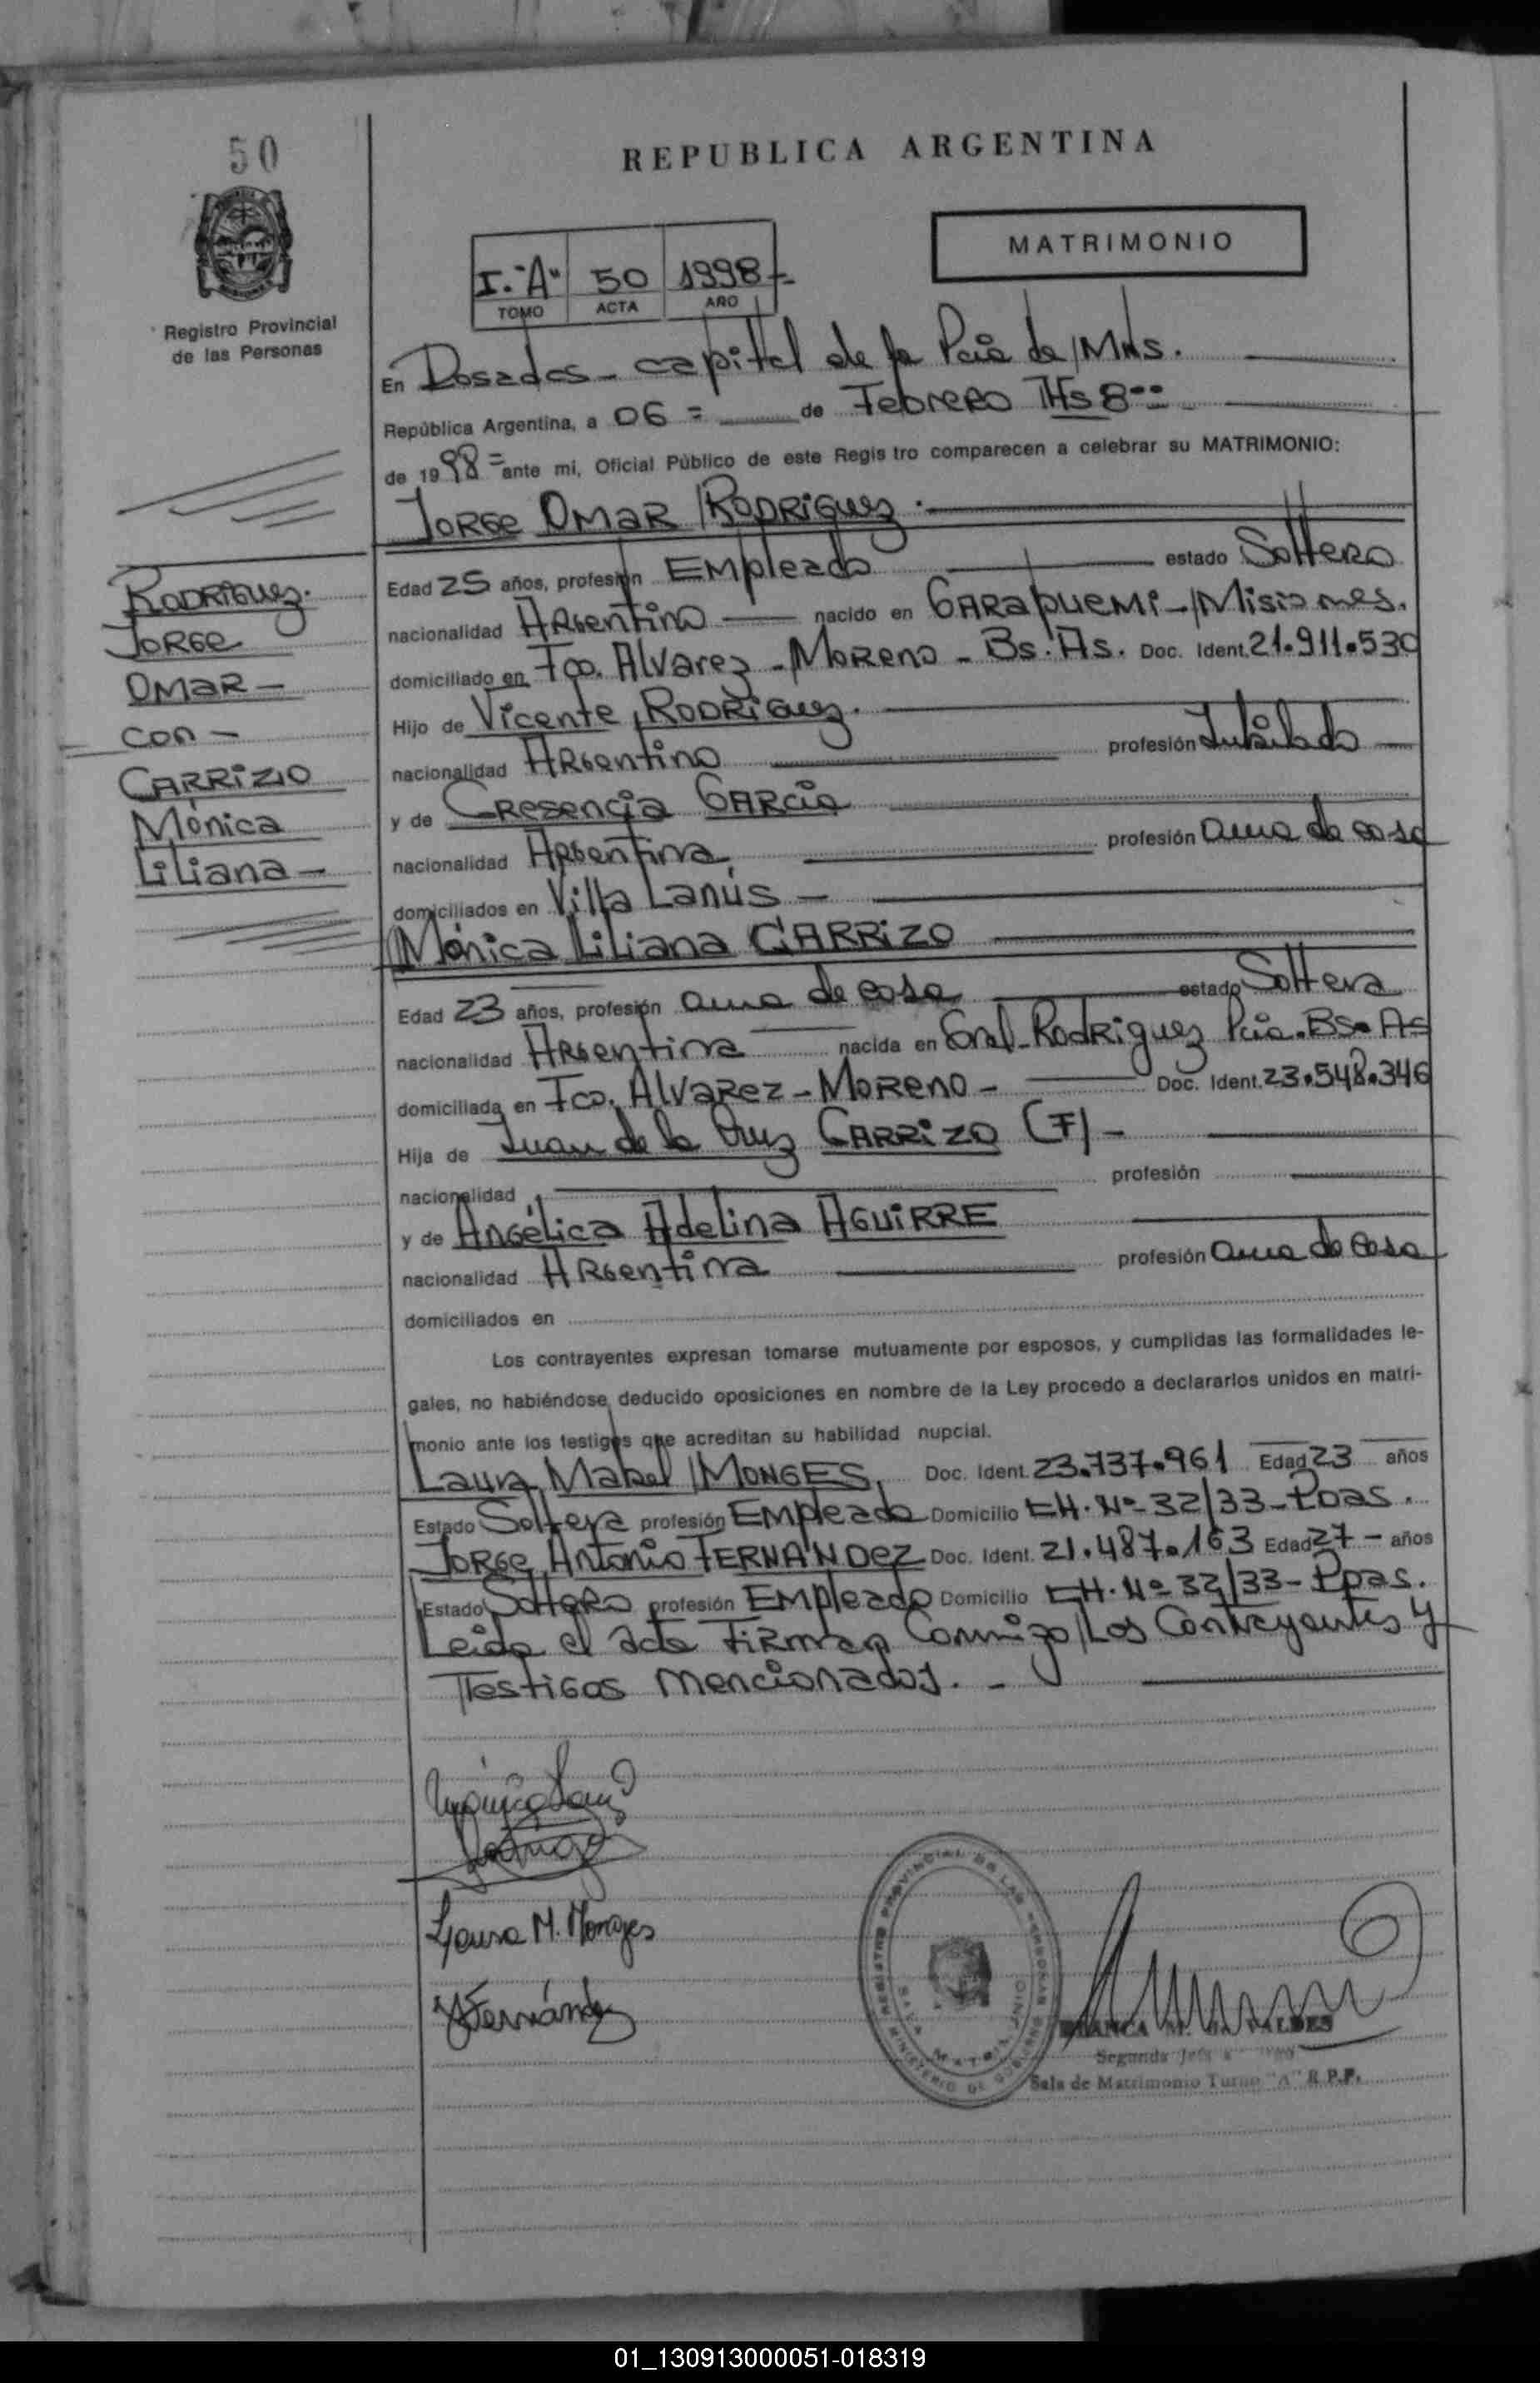 50
REPUBLICA ARGENTINA
MATRIMONIO
I. "A" 50 1998
TOMO ACTA AÑO
Registro Provincial
de las Personas
En Posadas - capital de la Pcia de Mns.
República Argentina, a 06 = de Febrero Hs 8oo
de 1998 = ante mi, Oficial Público de este Regis tro comparecen a celebrar su MATRIMONIO:
Jorge Omar Rodriguez.
Edad 25 años, profesión Empleado estado Soltero
nacionalidad Argentino nacido en Garapuemi - Misiones.
domiciliado en Fco. Alvarez - Moreno - Bs. As. Doc. Ident. 21.911.530
Hijo de Vicente Rodriguez.
nacionalidad Argentino profesión Jubilado
y de Cresencia Garcia
nacionalidad Argentina profesión ama de casa
domiciliados en Villa Lanús
Rodriguez.
Jorge
Omar -
con -
CARRIZO
Mónica
Liliana -
Mónica Liliana CARRIZO
Edad 23 años, profesión ama de casa estado Soltera
nacionalidad Argentina nacida en Gral. Rodriguez Pcia. Bs. As
domiciliada en Fco. Alvarez - Moreno - Doc. Ident. 23.548.346
Hija de Juan de la Cruz CARRIZO (F) -
nacionalidad profesión
y de Angélica Adelina AGUIRRE
nacionalidad Argentina profesión ama de casa
domiciliados en
Los contrayentes expresan tomarse mutuamente por esposos, y cumplidas las formalidades le-
gales, no habiéndose deducido oposiciones en nombre de la Ley procedo a declararlos unidos en matri-
monio ante los testigos que acreditan su habilidad nupcial.
Laura Mabel MONGES Doc. Ident. 23.737.961 Edad 23 años
Estado Soltera profesión Empleada Domicilio CH. Nº 32/33 - Pdas.
Jorge Antonio FERNÁNDEZ Doc. Ident. 21.487.163 Edad 27 - años
Estado Soltero profesión Empleado Domicilio CH. Nº 32/33 - Pdas.
Leida el acta Firman Conmigo Los Contrayentes y
Testigos mencionados. -
Laura M. Monges
Fernández
REGISTRO PROVINCIAL DE LAS PERSONAS
MINISTERIO DE GOBIERNO
BLANCA M. VALDES
Segunda Jefa
Sala de Matrimonio Turno "A" R.P.P.
01_130913000051-018319